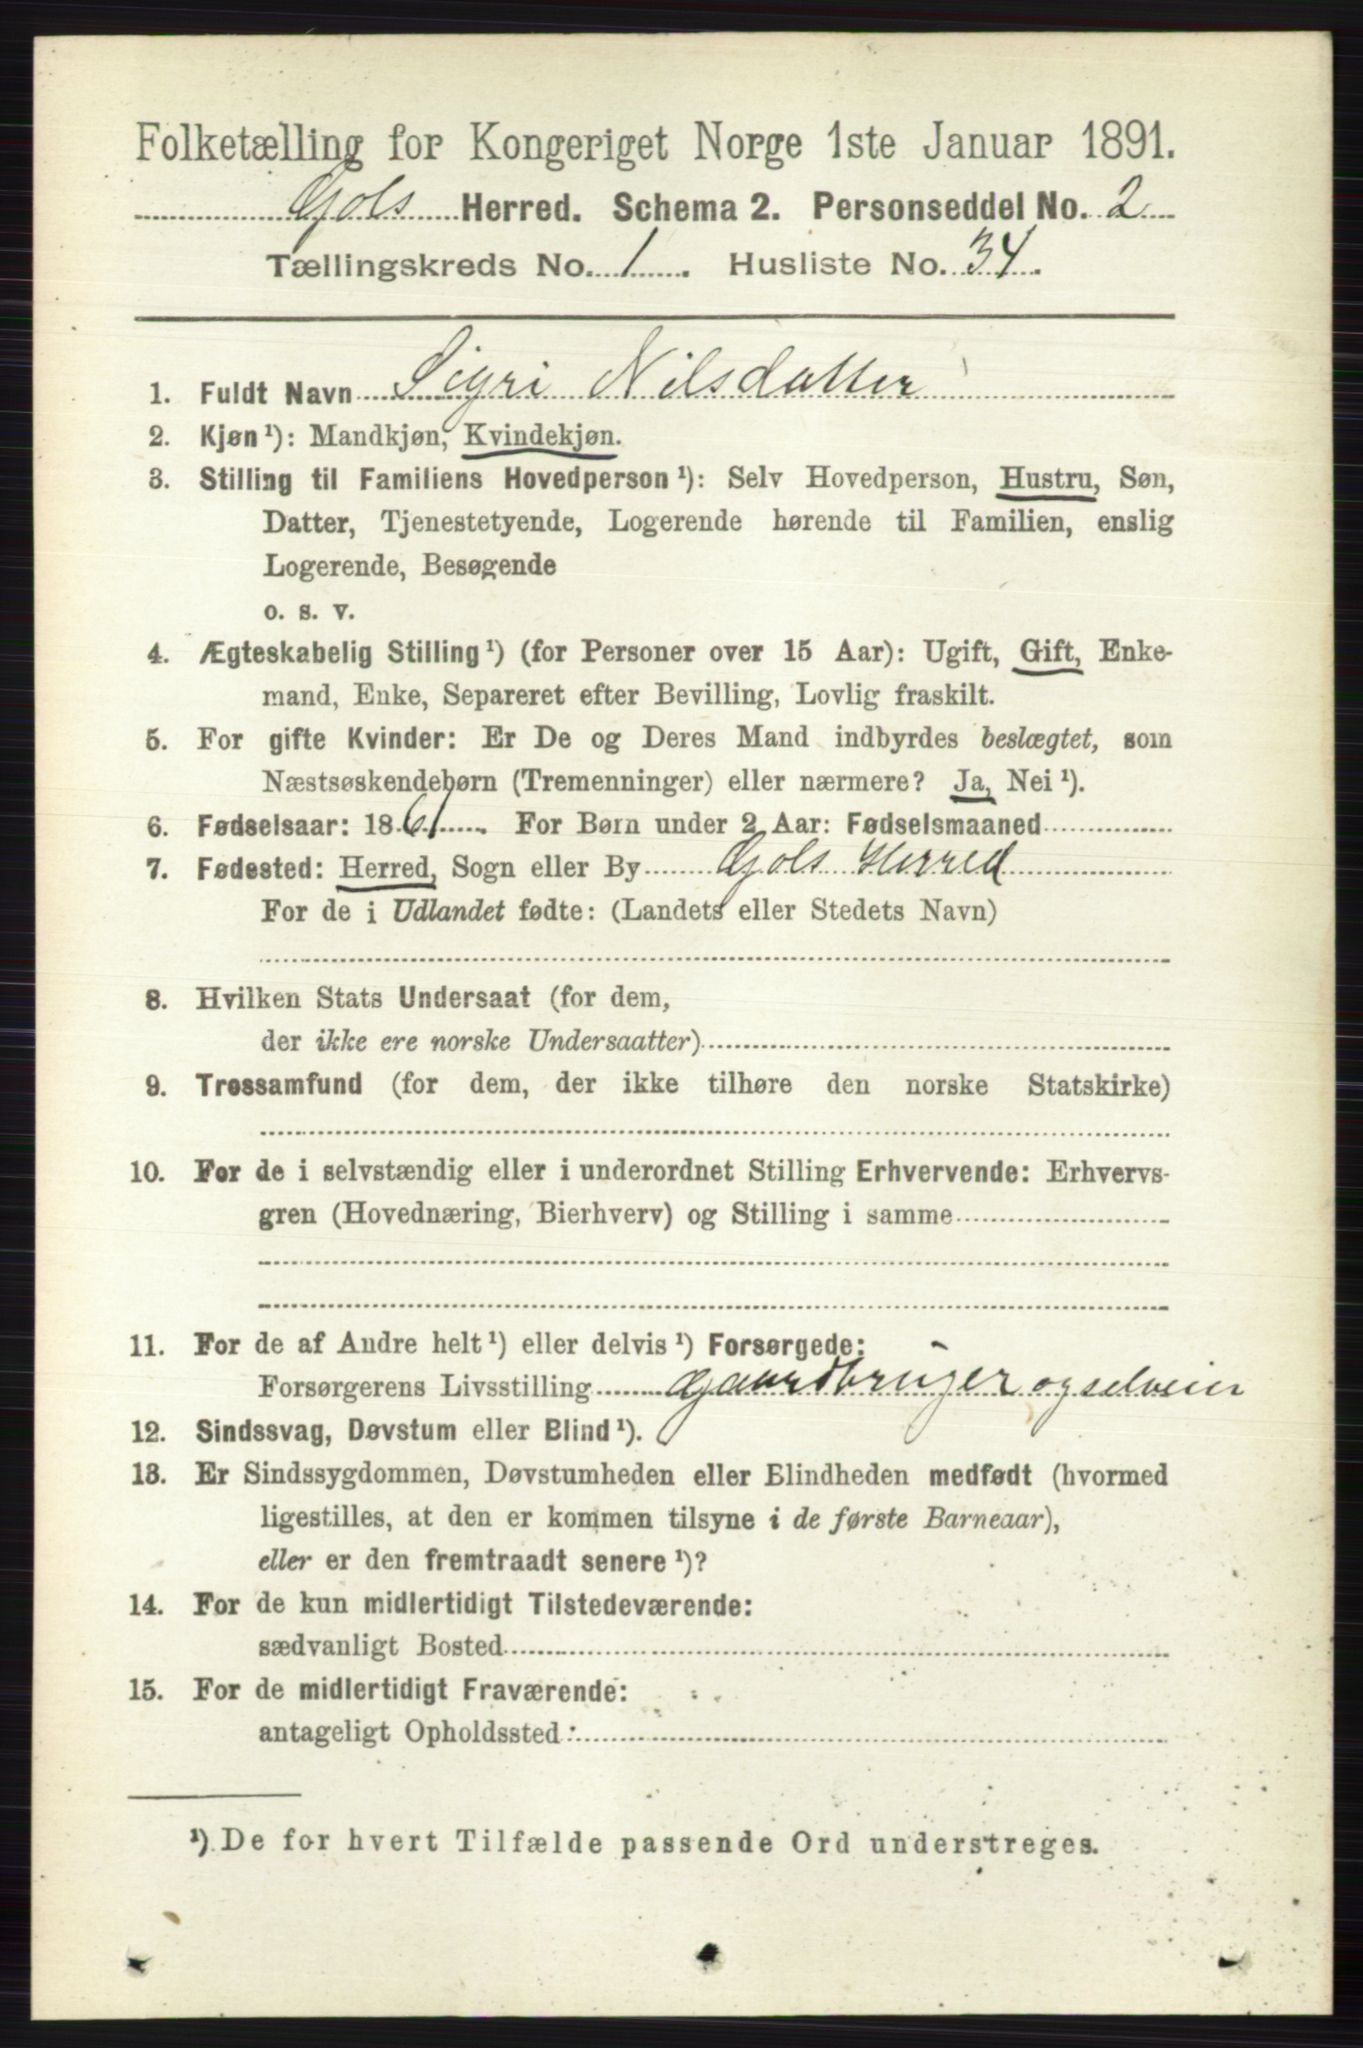 Folketælling for Kongeriget Norge 1ste Januar 1891.
Gols Herred. Schema 2. Personseddel No. 2
Tællingskreds No. 1. Husliste No. 34.
1. Fuldt Navn Sigri Nilsdatter
2. Kjøn ¹): Mandkjøn, Kvindekjøn.
3. Stilling til Familiens Hovedperson ¹): Selv Hovedperson, Hustru, Søn,
Datter, Tjenestetyende, Logerende hørende til Familien, enslig
Logerende, Besøgende
o. s. v.
4. Ægteskabelig Stilling ¹) (for Personer over 15 Aar): Ugift, Gift, Enke-
mand, Enke, Separeret efter Bevilling, Lovlig fraskilt.
5. For gifte Kvinder: Er De og Deres Mand indbyrdes beslægtet, som
Næstsøskendebørn (Tremenninger) eller nærmere? Ja, Nei ¹).
6. Fødselsaar: 1861. For Børn under 2 Aar: Fødselsmaaned
7. Fødested: Herred, Sogn eller By Gols Herred
For de i Udlandet fødte: (Landets eller Stedets Navn)
8. Hvilken Stats Undersaat (for dem,
der ikke ere norske Undersaatter)
9. Trossamfund (for dem, der ikke tilhøre den norske Statskirke)
10. For de i selvstændig eller i underordnet Stilling Erhvervende: Erhvervs-
gren (Hovednæring, Bierhverv) og Stilling i samme
11. For de af Andre helt ¹) eller delvis ¹) Forsørgede:
Forsørgerens Livsstilling Gaardbruger og selveier
12. Sindssvag, Døvstum eller Blind ¹).
13. Er Sindssygdommen, Døvstumheden eller Blindheden medfødt (hvormed
ligestilles, at den er kommen tilsyne i de første Barneaar),
eller er den fremtraadt senere ¹)?
14. For de kun midlertidigt Tilstedeværende:
sædvanligt Bosted
15. For de midlertidigt Fraværende:
antageligt Opholdssted:
¹) De for hvert Tilfælde passende Ord understreges.